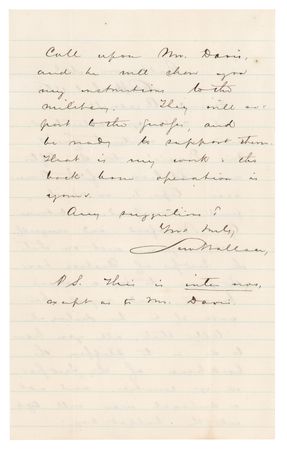 Call upon Mr. Davis,
and he will show you
my instructions to the
military. They will re-
port to the
and
be ready to support them.
That is my work: the
back bone operation is
yours.
Any suggestions?
Yours truly,
Lew Wallace,
P.S. This is inter nos,
except as to Mr. Davis.